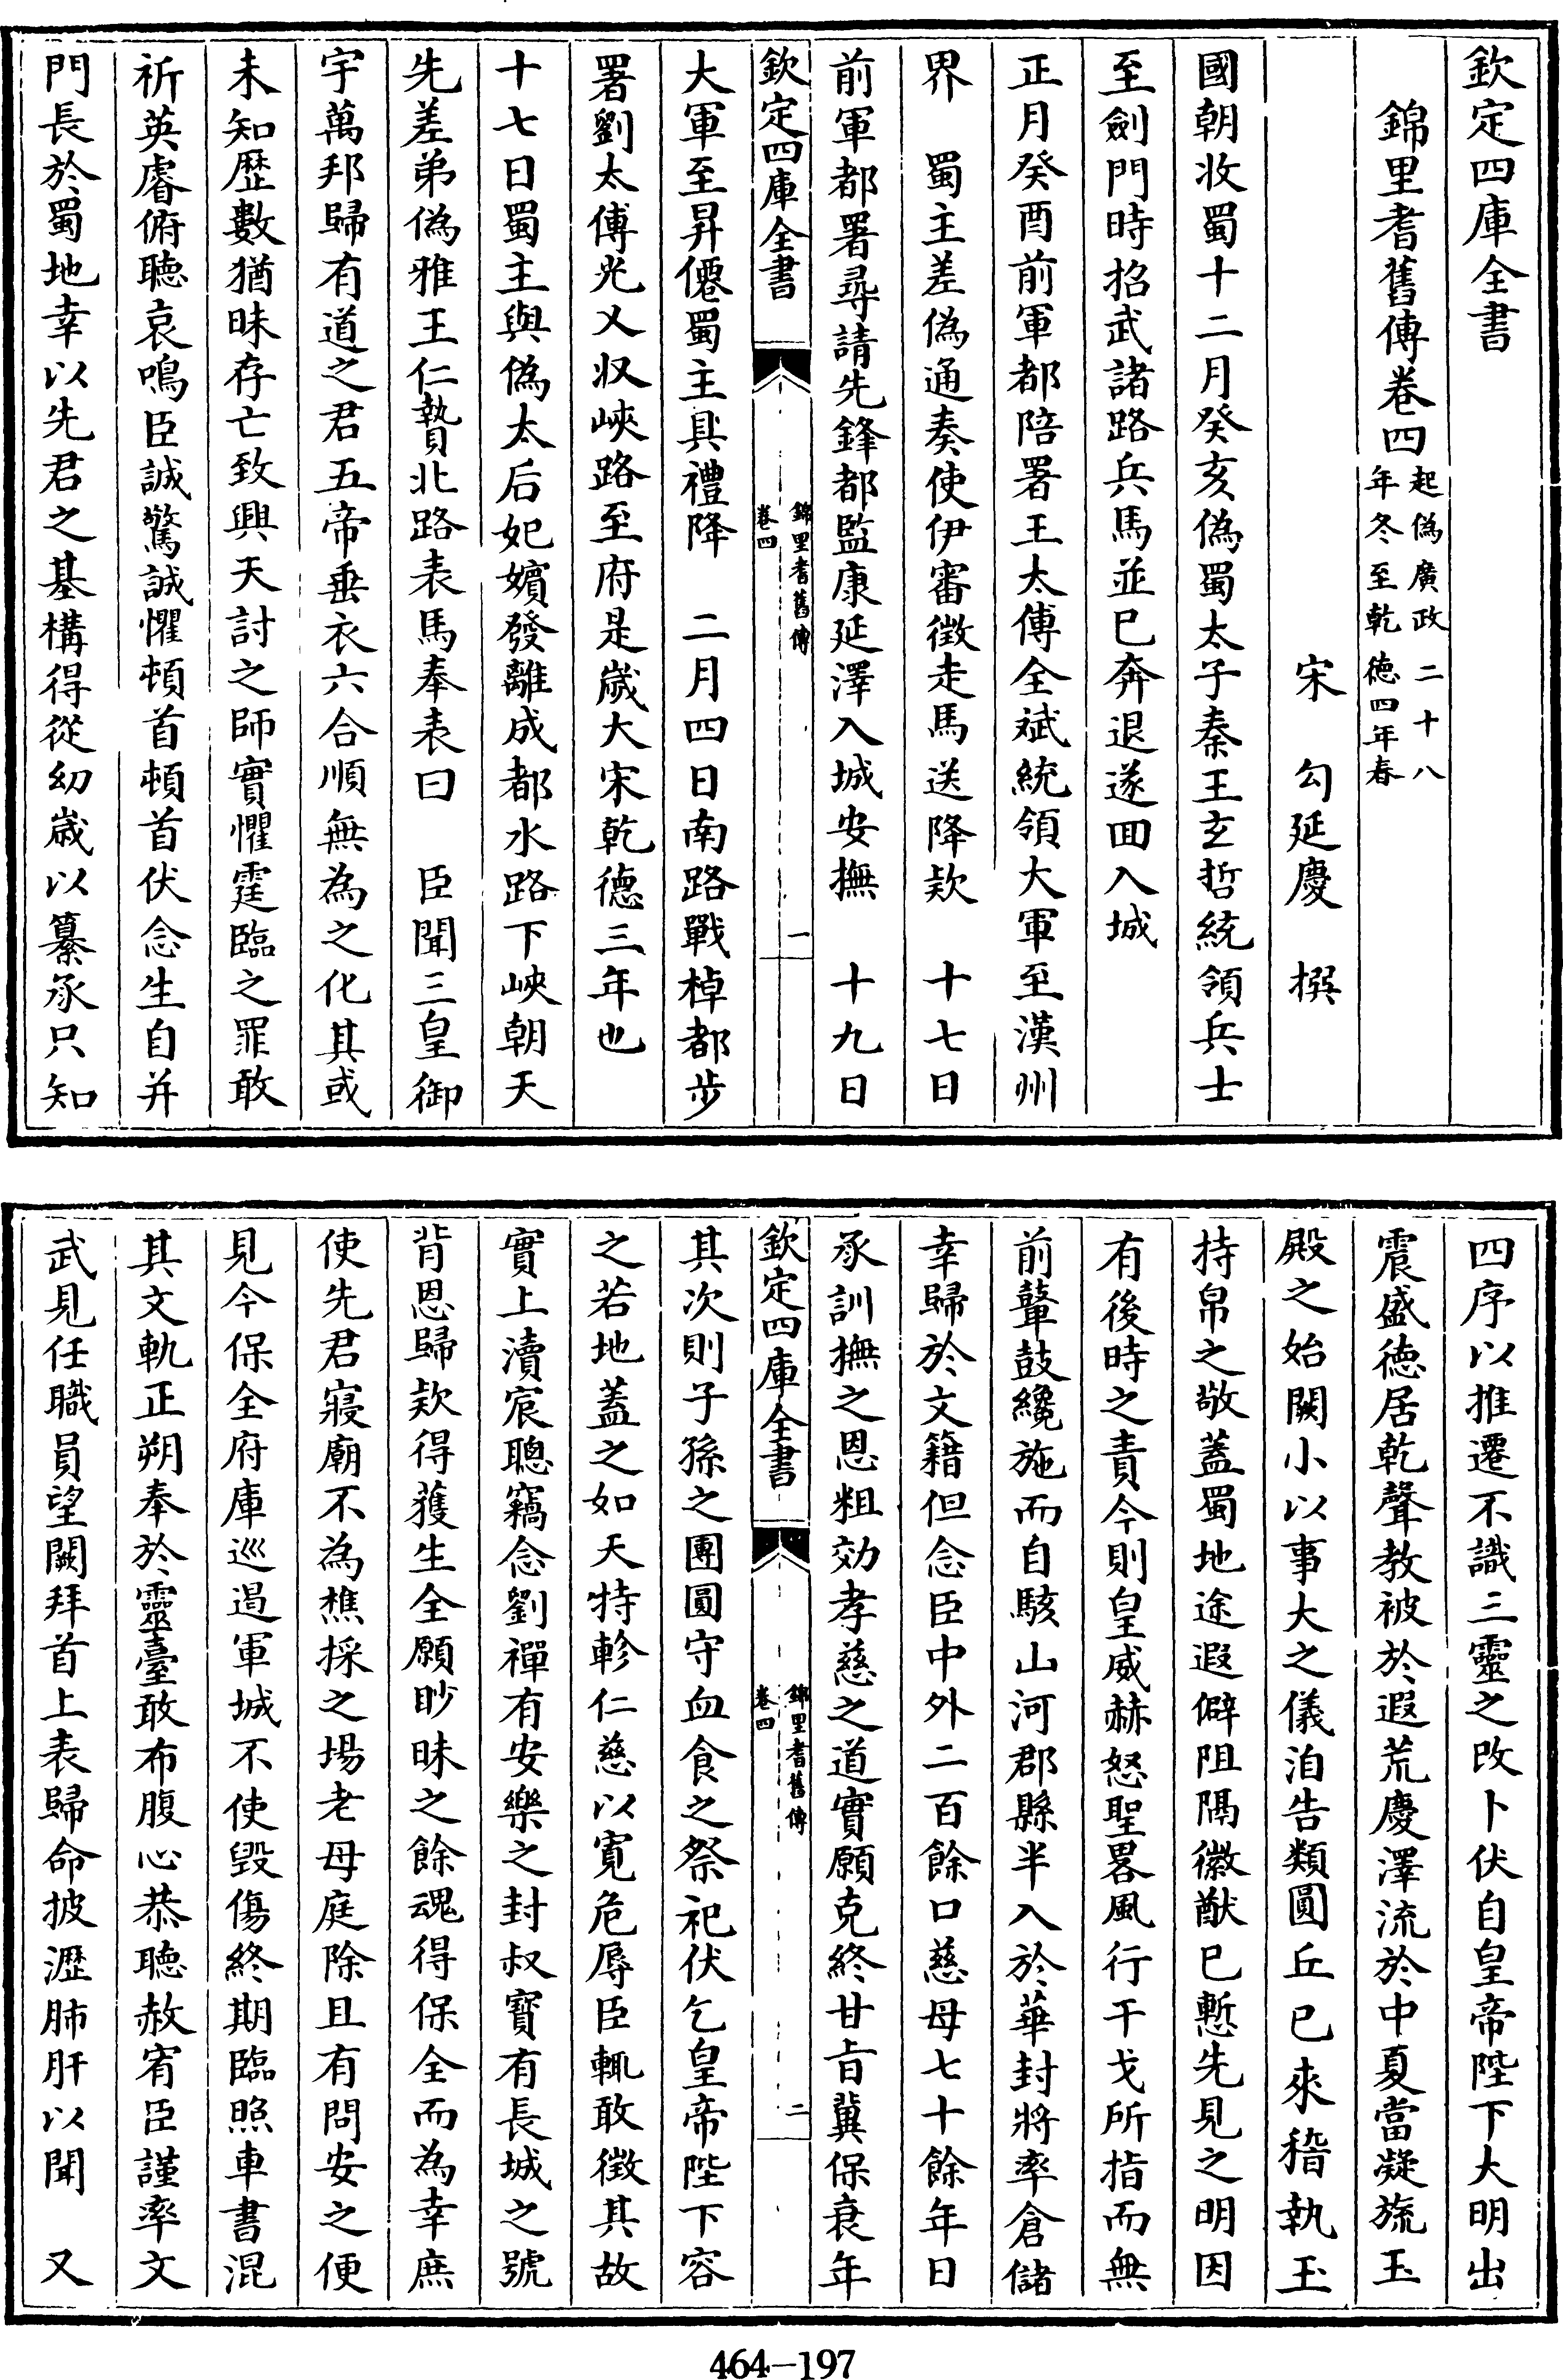 欽定四庫全書
錦里耆舊傳卷四
起偽廣政二十八
年冬至乾德四年春
宋　勾延慶　撰
國朝收蜀十二月癸亥偽蜀太子秦王玄哲統領兵士
至劍門時招武諸路兵馬並已奔退遂囬入城
正月癸酉前軍都陪署王太傅全斌統領大軍至漢州
界　蜀主差偽通奏使伊審徵走馬送降欵　十七日
前軍都署尋請先鋒都監康延澤入城安撫　十九日
欽定四庫全書
錦里耆舊傳
卷四
一
大軍至昇僊蜀主具禮降　二月四日南路戰棹都步
署劉太傅光乂収峽路至府是嵗大宋乾德三年也
十七日蜀主與偽太后妃嬪發離成都水路下峽朝天
先差弟偽雅王仁贄北路表馬奉表曰　臣聞三皇御
宇萬邦歸有道之君五帝垂衣六合順無為之化其或
未知歴數猶昧存亡致興天討之師實懼霆臨之罪敢
祈英睿俯聽哀鳴臣誠驚誠懼頓首頓首伏念生自并
門長於蜀地幸以先君之基構得從幼嵗以纂承只知
四序以推遷不識三靈之改卜伏自皇帝陛下大明出
震盛德居乾聲教被於遐荒慶澤流於中夏當凝旒玉
殿之始闕小以事大之儀洎告類圓丘已來稽執玉
持帛之敬蓋蜀地途遐僻阻隔徽猷已慙先見之明因
有後時之責今則皇威赫怒聖畧風行干戈所指而無
前鼙鼓纔施而自駭山河郡縣半入於華封將率倉儲
幸歸於文籍但念臣中外二百餘口慈母七十餘年日
承訓撫之恩粗効孝慈之道實願克終甘旨冀保衰年
欽定四庫全書
錦里耆舊傳
卷四
二
其次則子孫之團圓守血食之祭祀伏乞皇帝陛下容
之若地蓋之如天特軫仁慈以寛危辱臣輒敢徴其故
實上瀆宸聰竊念劉禪有安樂之封叔寳有長城之號
背恩歸欵得獲生全願眇昧之餘魂得保全而為幸庶
使先君寢廟不為樵採之場老母庭除且有問安之便
見今保全府庫巡遏軍城不使毀傷終期臨照車書混
其文軌正朔奉於靈臺敢布腹心恭聽赦宥臣謹率文
武見任職員望闕拜首上表歸命披瀝肺肝以聞　又
464-197